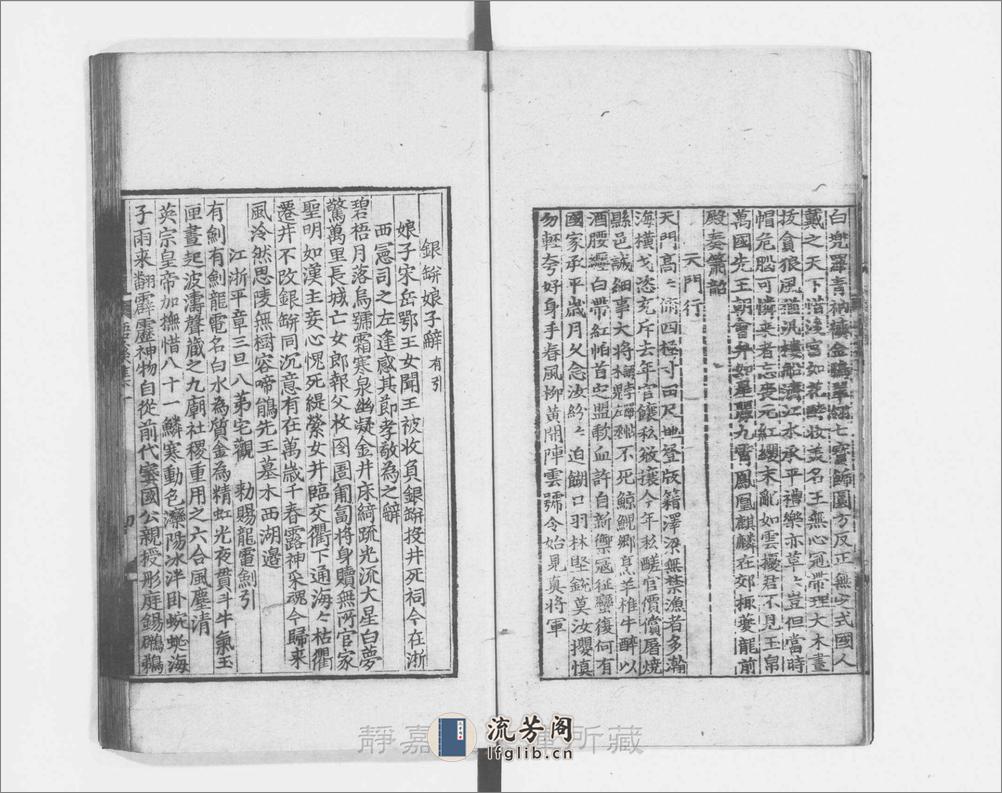 白兜羅青衲襖金鵄華紐七寶飾園方反正無定式國人
戴之天下惜淺宮如花時妝美名王無心冠帶理大木晝
拔貪狼風
帽危腦可憐來者忘喪元紅纓末亂如雲擾君不見玉帛
萬國先王朝會弁如星麗九霄鳳凰麒麟在郊棷夔龍前
殿奏簫韶
天門行
天門高高俯四極寸田尺地登版籍澤梁無禁漁者多瀚
海橫戈恣充斥去年官饟私敓攘今年私醝官價償屠燒
縣邑誠細事大將
酒腰纏白帶紅帕首之盟歃血許自新禦冦征蠻復何有
國家承平歲月久念汝紛〻迫餬口羽林堅銳莫汝攖慎
勿輕夸好身手春風柳黃開陣雲號令始見真將軍
銀缾娘子辭 有引
娘子宋岳鄂王女聞王被收負銀缾投井死祠今在浙
西憲司之左逢感其節孝敬為之辭
碧梧月落烏號霜寒泉幽凝金井床綺疏光流大星白夢
驚萬里長城亡女郎報父收囹圄匍匐將身贖無所官家
聖明如漢主妾心愧死緹縈女井臨交衢下通海〻枯衢
遷井不改銀缾同沉意有在萬歲千春露神采魂今歸來
風泠然思陵無樹容啼鵑先王墓木西湖邉
江浙平章三旦八第宅觀　勑賜龍電劍引
有劍有劍龍電名白水為質金為精虹光夜貫斗牛氣玉
匣晝起波濤聲藏之九廟社稷重用之六合風塵清
英宗皇帝加撫惜八十一鱗寒動色灤陽冰泮卧蜿蜒海
子雨来翻霹靂神物自從前代寥國公親授彤庭錫鸊鵜
靜嘉 所藏
流芳阁
lfglib.cn